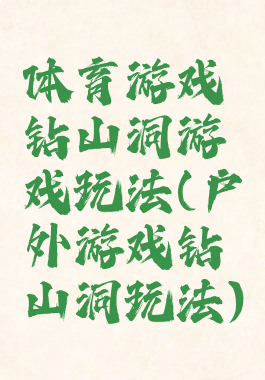 体育游戏
钻山洞游
戏玩法(户
外游戏钻
山洞玩法)